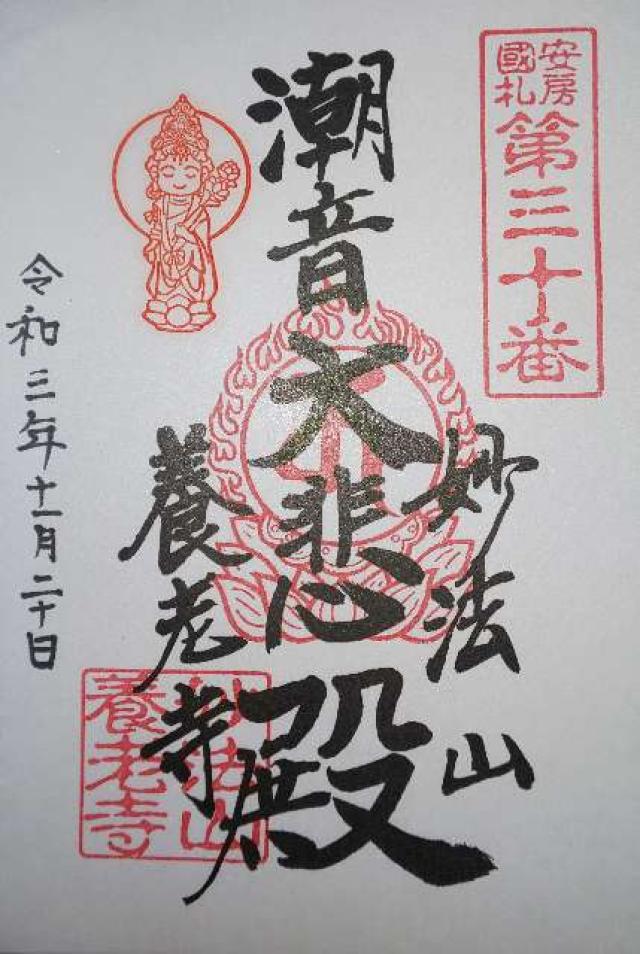 安房
國札
第三十番
妙法山
潮音
大悲心
殿
養老寺
令和三年十一月二十日
妙法山
養老寺